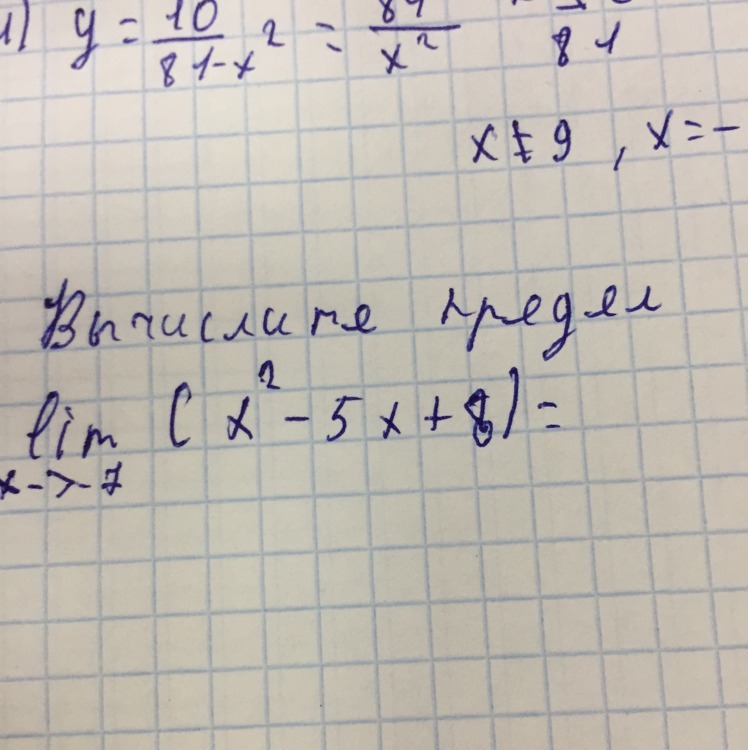 1) y = 10/(81-x²) = 81/x² 81
x ≠ 9 , x = -
Вычислите предел
lim (x² - 5x + 8) =
x -> -7